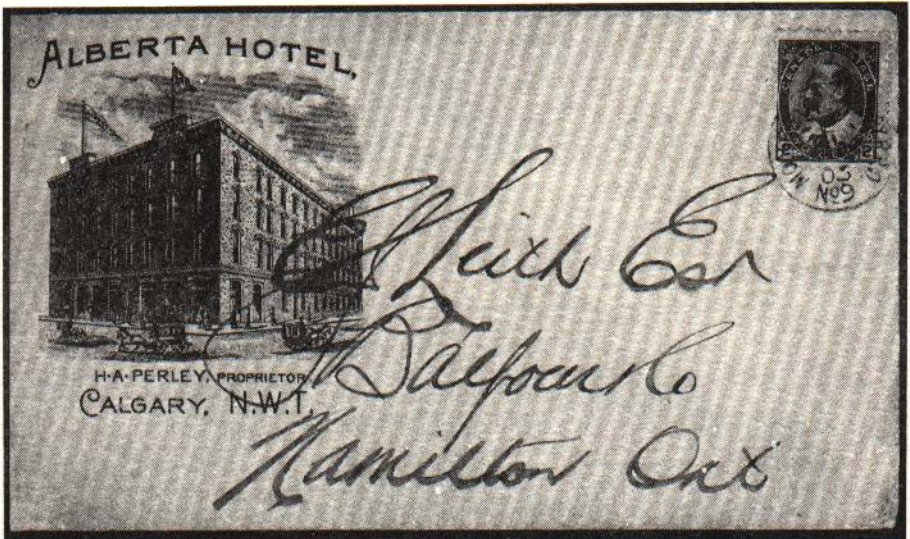 ALBERTA HOTEL,
H·A·PERLEY, PROPRIETOR
CALGARY, N.W.T.
03
Nº9
Leith Esq
Balfour & Co
Hamilton Ont